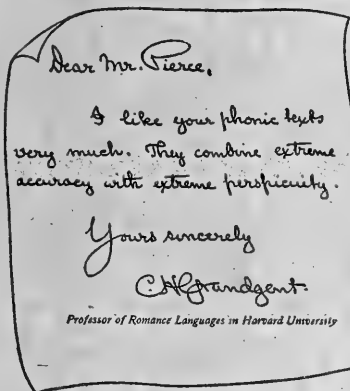 Dear Mr. Pierce,
I like your phonic texts
very much. They combine extreme
accuracy with extreme perspicuity.
Yours sincerely
CHGrandgent.
Professor of Romance Languages in Harvard University